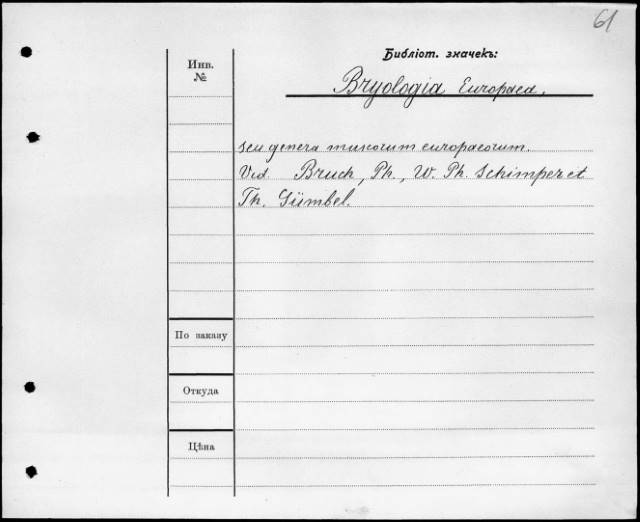 61
Библіот. значекъ:
Инв.
№
Bryologia Europaea.
seu genera muscorum europaeorum.
Vid. Bruch, Ph., W. Ph. Schimper et
Th. Gümbel.
По заказу
Откуда
Цѣна